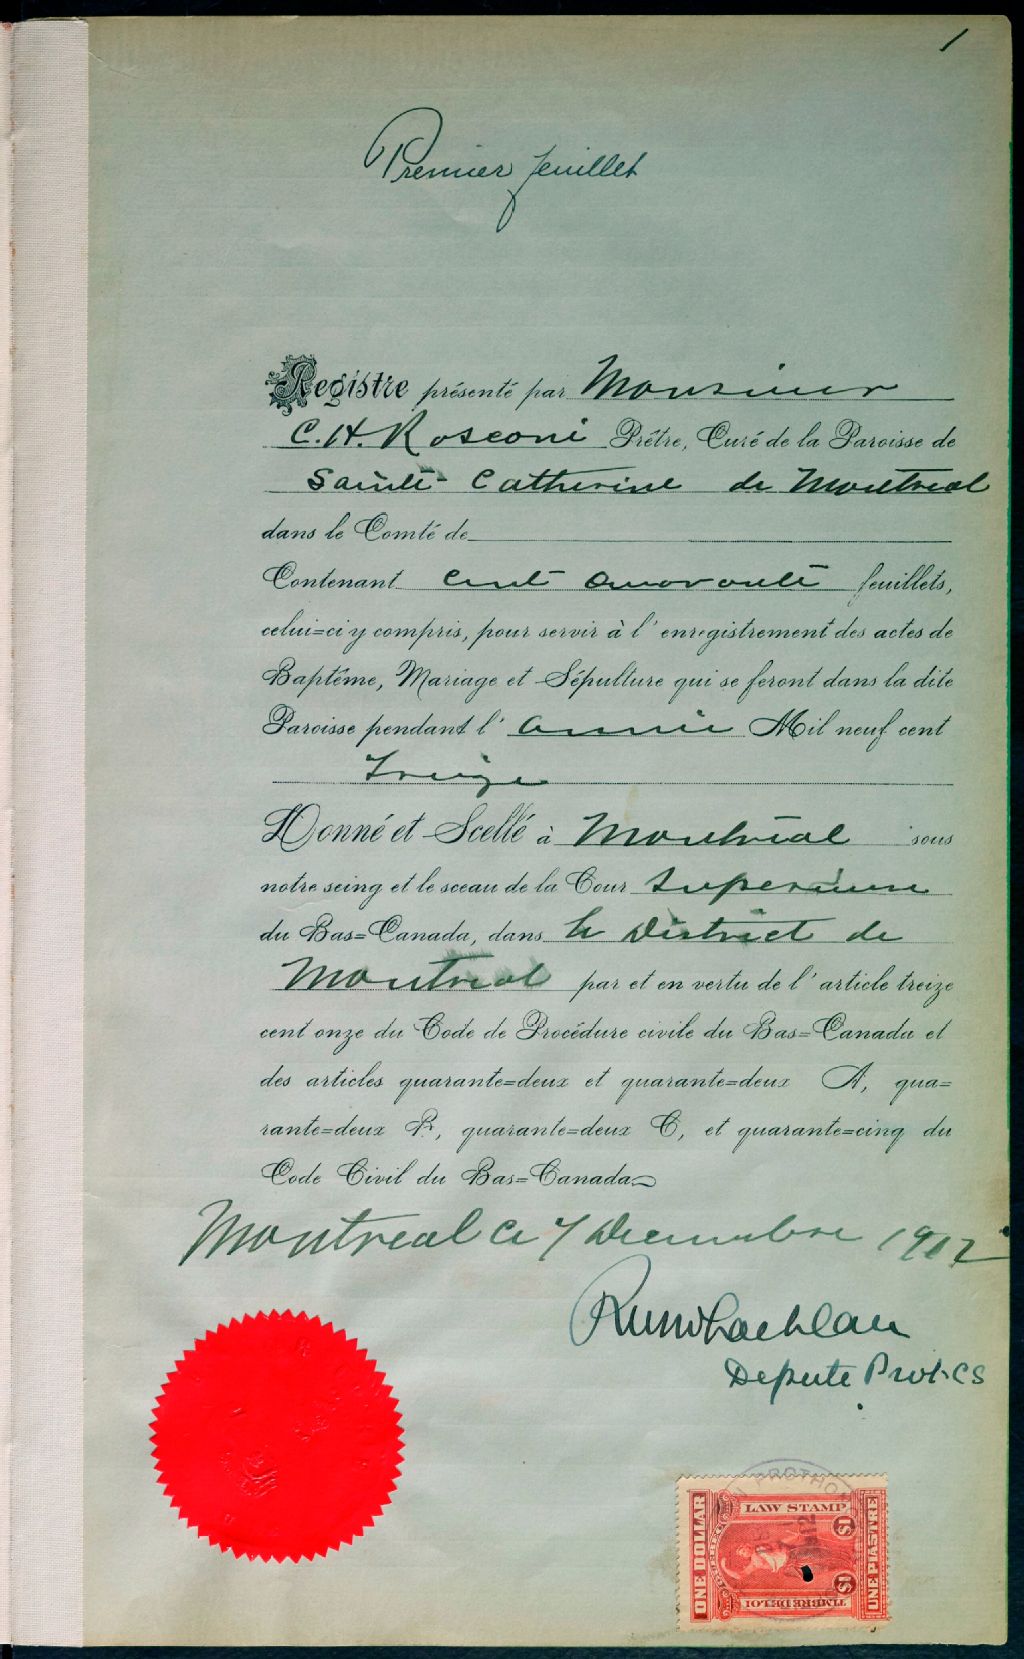 1
Premier feuillet
Registre présenté par Monsieur
C. H. Rosconi Prêtre, Curé de la Paroisse de
Sainte-Catherine de Montreal
dans le Comté de
Contenant cent quarante feuillets,
celui=ci y compris, pour servir à l'enregistrement des actes de
Baptême, Mariage et Sépulture qui se feront dans la dite
Paroisse pendant l'année Mil neuf cent
treize
Donné et Scellé à Montréal sous
notre seing et le sceau de la Cour Superieure
du Bas=Canada, dans le District de
Montreal par et en vertu de l'article treize
cent onze du Code de Procédure civile du Bas=Canada et
des articles quarante=deux et quarante=deux A, qua=
rante=deux B, quarante=deux C, et quarante=cinq du
Code Civil du Bas=Canada
Montreal ce 7 Decembre 1912
Depute Prot. CS
PROTHO
LAW STAMP
ONE DOLLAR
UNE PIASTRE
$1
$1
TIMBRE DE LOI